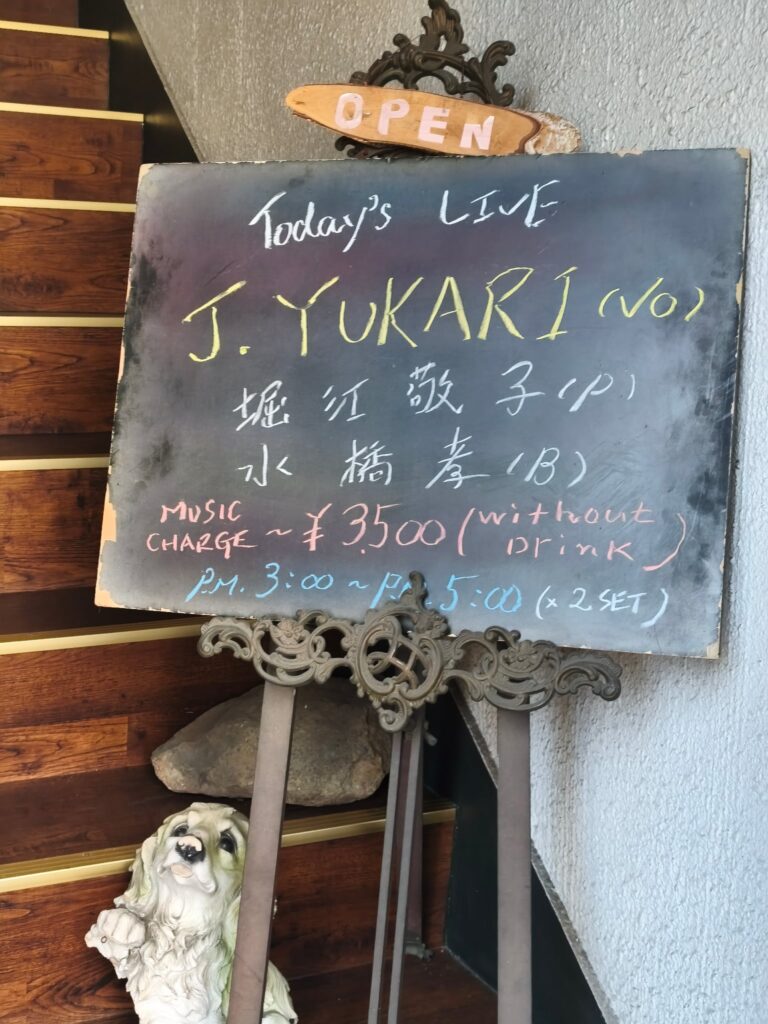 OPEN
Today's LIVE
J. YUKARI (VO)
堀江敬子(P)
水橋孝(B)
MUSIC CHARGE ~ ¥3,500 (without Drink)
P.M. 3:00 ~ P.M. 5:00 (x 2 SET)